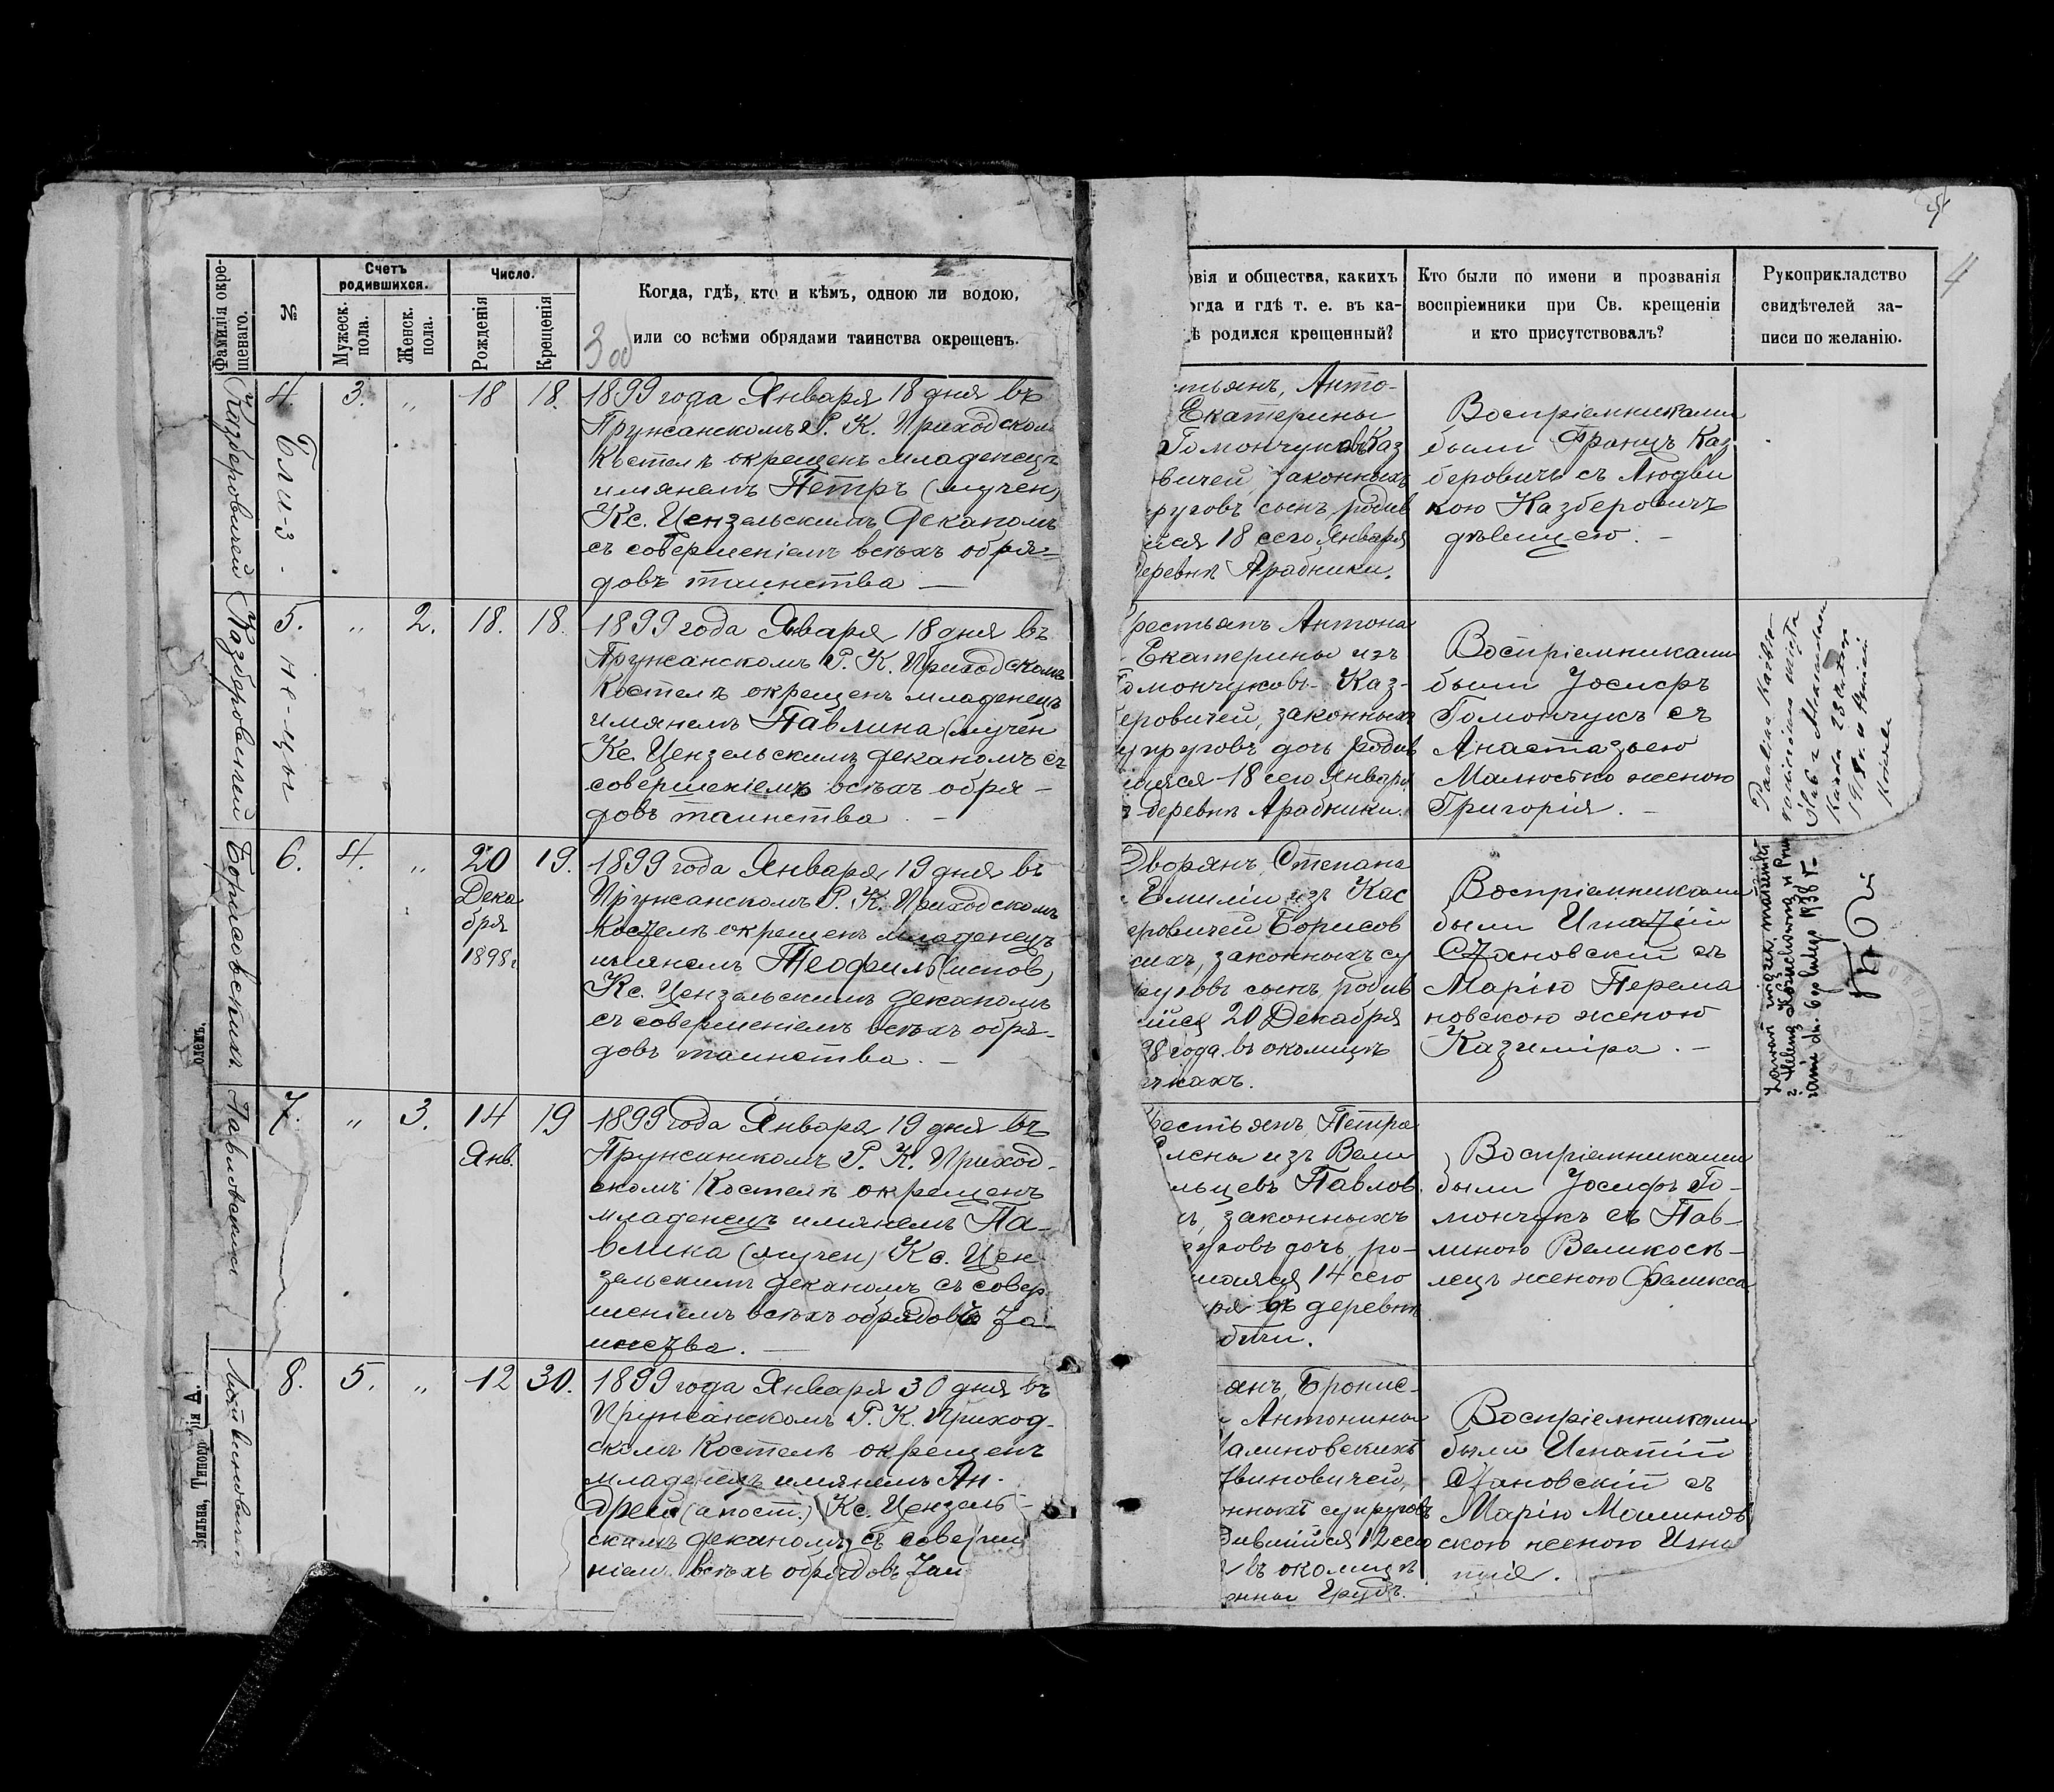 4
Фамилія окре-
щенаго.
№
Счетъ
родившихся.
Мужеск.
пола.
Женск.
пола.
Число.
Рожденія
Крещенія
Когда, гдѣ, кто и кѣмъ, одною ли водою,
или со всѣми обрядами таинства окрещенъ.
овія и общества, какихъ
огда и гдѣ т. е. въ ка-
ѣ родился крещенный?
Кто были по имени и прозванія
воспріемники при Св. крещеніи
и кто присутствовалъ?
Рукоприкладство
свидѣтелей за-
писи по желанію.
Казберовичей
4
Бли-з
3.
"
18
18.
1899 года Января 18 дня въ
Пружанскомъ Р. К. Приходском
Костелѣ окрещенъ младенецъ
имянемъ Петръ (мучен)
Кс. Цензельскимъ Деканомъ
съ совершеніемъ всѣхъ обря-
довъ таинства —
тьянъ, Анто-
Екатерины
Гомончуковъ Каз
вичей законныхъ
руговъ сынъ, родив
ійся 18 сего Января
деревнѣ Арабники.
Воспріемниками
были Францъ Каз
беровичъ съ Людви
кою Казберовичъ
дѣвицею. —
Казберовичей
5.
не-цы
"
2.
18.
18.
1899 года Января 18 дня въ
Пружанскомъ Р. К. Приходскомъ
Костелѣ окрещенъ младенецъ
имянемъ Павлина (мучен
Кс. Цензельскимъ деканомъ съ
совершеніемъ всѣхъ обря-
довъ таинства. —
рестьянъ Антона
Екатерины изъ
Гомончуковъ Каз-
еровичей, законныхъ
упруговъ дочь родив
шаяся 18 сего Января
деревнѣ Арабники.
Воспріемниками
были Іосифъ
Гомончукъ съ
Анастазьею
Малюстко женою
Григорія. —
Paulina Kazbe-
Борисовскихъ
6.
4.
"
20
Дека
бря
1898 г.
19.
1899 года Января 19 дня въ
Пружанскомъ Р. К. Приходскомъ
Костелѣ окрещенъ младенецъ
имянемъ Теофиль (испов)
Кс. Цензельскимъ деканомъ
съ совершеніемъ всѣхъ обря-
довъ таинства. —
Дворянъ, Степана
Емиліи изъ Кас
еровичей Борисов
скихъ, законныхъ су
руговъ сынъ, родив
ійся 20 Декабря
98 года въ околицѣ
кахъ.
Воспріемниками
были Игнатій
Становскій съ
Марію Перема
новскою женою
Казиміра. —
Zawarł związek małżeński
Павловскихъ
7.
"
3.
14
Янв.
19
1899 года Января 19 дня въ
Пружанскомъ Р. К. Приход-
скомъ Костелѣ окрещенъ
младенецъ имянемъ Па-
влина (мучен) Кс. Цен
зельскимъ деканомъ съ совер
шеніемъ всѣхъ обрядовъ та-
инства. —
рестьянъ, Петра
Елены изъ Вели
льцевъ Павлов
законныхъ
руговъ дочь, ро-
шаяся 14 сего
ря въ деревнѣ
бичи.
Воспріемниками
были Іосифъ Го-
мончукъ съ Пав-
линою Великосѣ-
лецъ женою Феликса
8.
5.
"
12
30.
1899 года Января 30 дня въ
Пружанскомъ Р. К. Приход-
скомъ Костелѣ окрещенъ
младенецъ имянемъ Ан-
дрей (апост.) Кс. Цензель-
скимъ деканомъ съ соверше
ніем всѣхъ обрядовъ таи
янъ, Бронис-
Антонины
алиновскихъ
виновичей,
нныхъ супруговъ
дившійся 12 сего
въ околицѣ
Грудъ.
Воспріемниками
были Игнатій
Становскій съ
Марію Малинов
скою женою Игна
тія.
олемъ.
Вильна, Типогр
рія А.